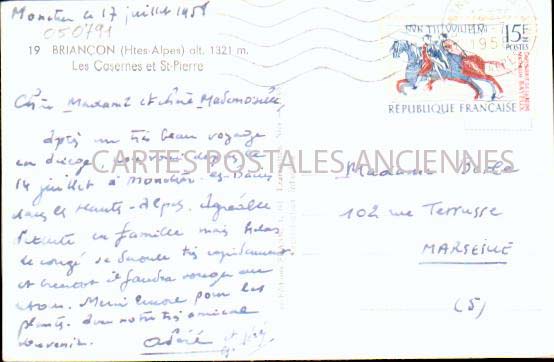 Monetier le 17 juillet 1958
050791
19 BRIANÇON (Htes-Alpes) alt. 1321 m.
Les Casernes et St-Pierre
Chère Madame et chère Mademoiselle,
Après un très beau voyage
en depuis le
14 juillet à Monetier-les-Bains
dans les Hautes-Alpes. Agréable
détente en famille mais hélas
le congé se déroule très rapidement
et il faudra songer au
retour. Merci encore pour les
plants. Bon notre très amical
souvenir.
CARTES POSTALES ANCIENNES
15F
POSTES
RÉPUBLIQUE FRANÇAISE
Madame
102 rue Terrusse
MARSEILLE
(5)